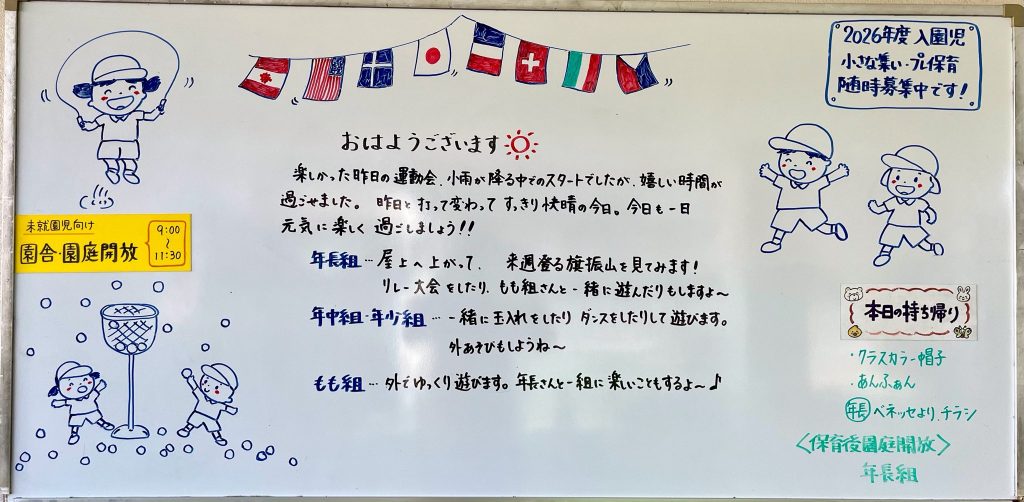 2026年度 入園児
小さな集い・プレ保育
随時募集中です！
おはようございます
楽しかった昨日の運動会、小雨が降る中でのスタートでしたが、嬉しい時間が
過ごせました。昨日と打って変わってすっきり快晴の今日。今日も一日
元気に楽しく過ごしましょう！！
年長組…屋上へ上がって、来週登る旗振山を見てみます！
リレー大会をしたり、もも組さんと一緒に遊んだりもしますよ〜
年中組・年少組…一緒に玉入れをしたりダンスをしたりして遊びます。
外あそびもしようね〜
もも組…外でゆっくり遊びます。年長さんと一組に楽しいこともするよ〜♪
未就園児向け
園舎・園庭開放
9:00
〜
11:30
本日の持ち帰り
・クラスカラー帽子
・あんふぁん
年長 ベネッセより、チラシ
〈保育後園庭開放〉
年長組